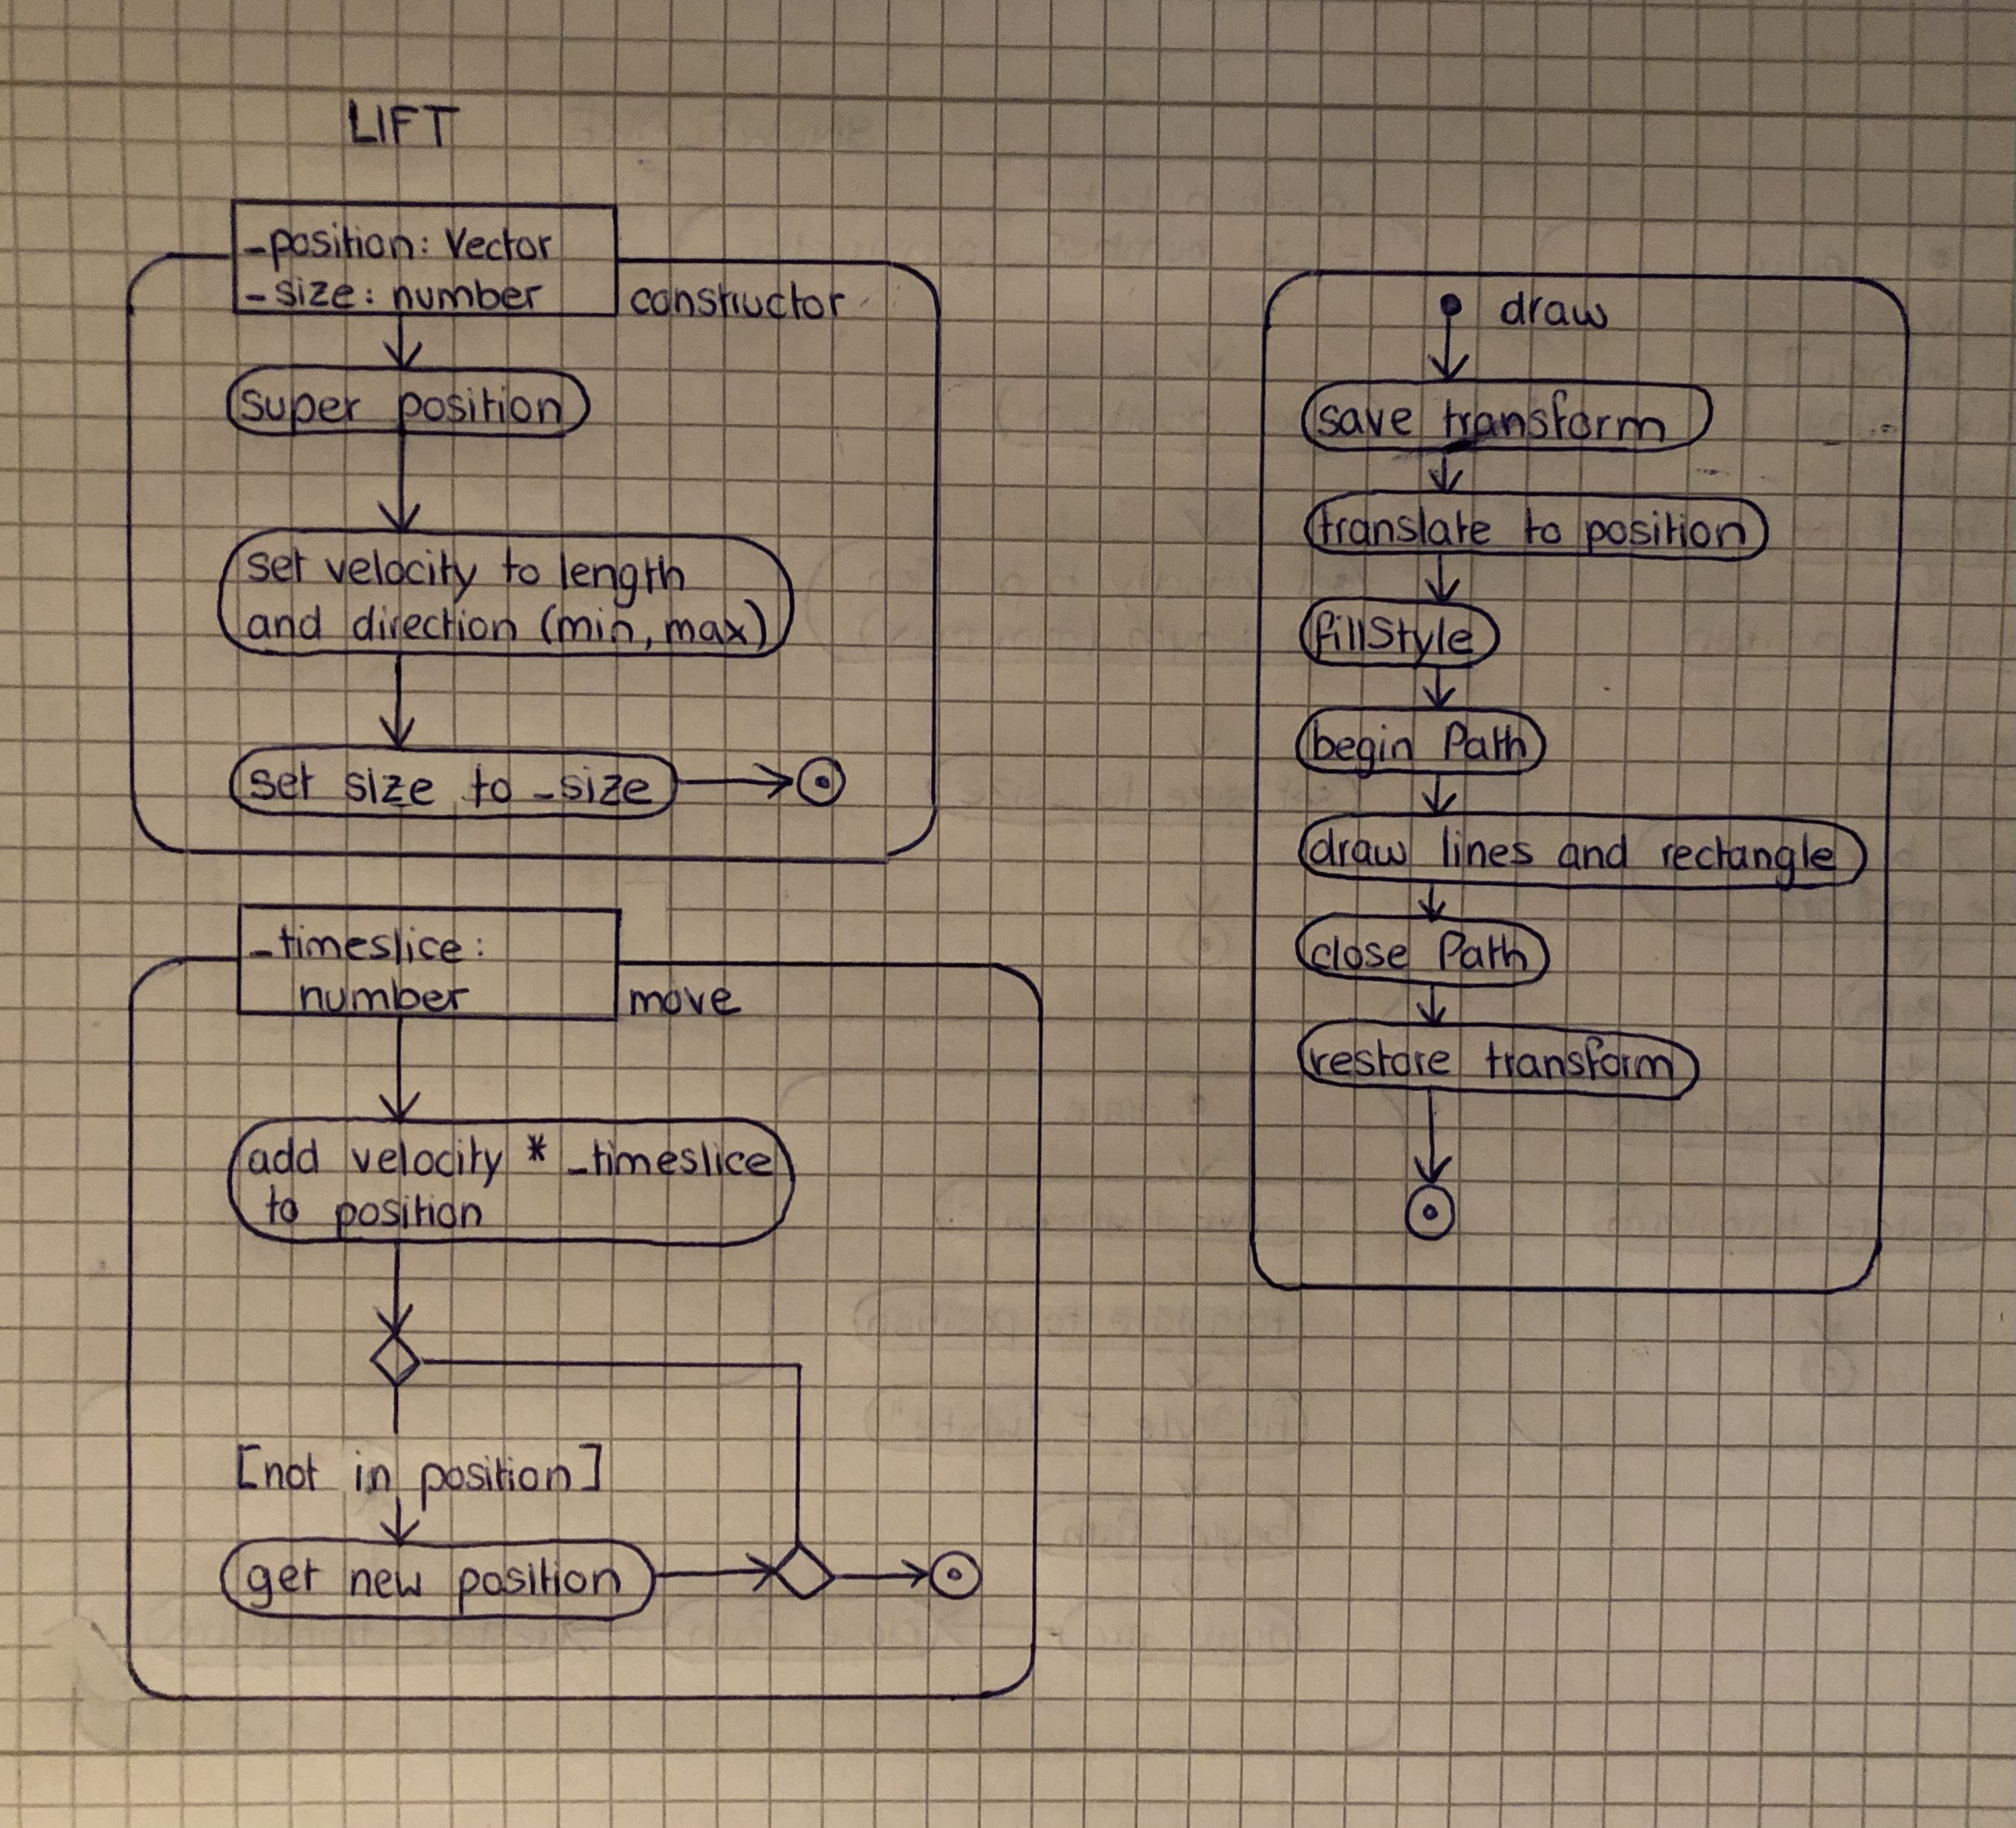 LIFT
_position: Vector
_size: number
constructor
super position
set velocity to length
and direction (min, max)
set size to _size
_timeslice:
number
move
add velocity * _timeslice
to position
[not in position]
get new position
draw
save transform
translate to position
fillStyle
begin Path
draw lines and rectangle
close Path
restore transform